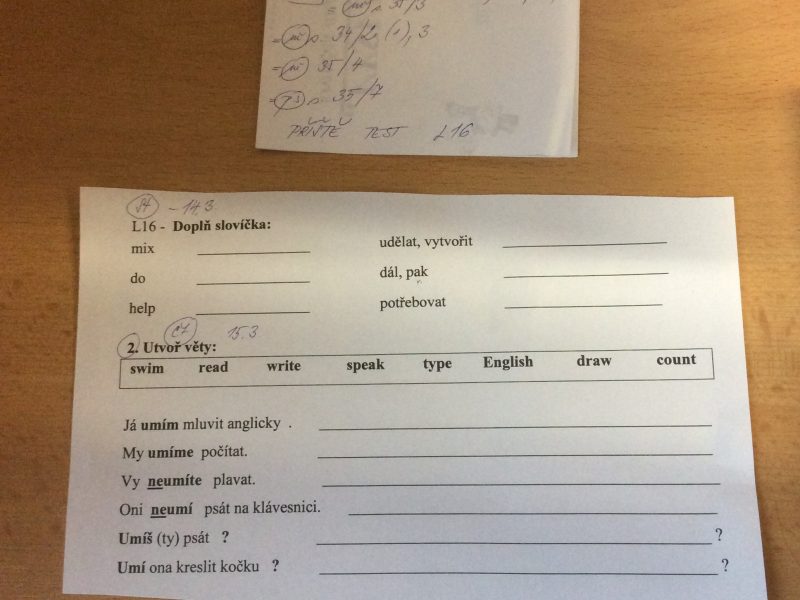 35/3
= ns. 34/2 (1), 3
35/4
35/7
PŘÍŠTĚ TEST L16
St - 14.3.
L16 - Doplň slovíčka:
mix udělat, vytvořit
do dál, pak
help potřebovat
čt 15.3
2. Utvoř věty:
swim read write speak type English draw count
Já umím mluvit anglicky .
My umíme počítat.
Vy neumíte plavat.
Oni neumí psát na klávesnici.
Umíš (ty) psát ? ?
Umí ona kreslit kočku ? ?